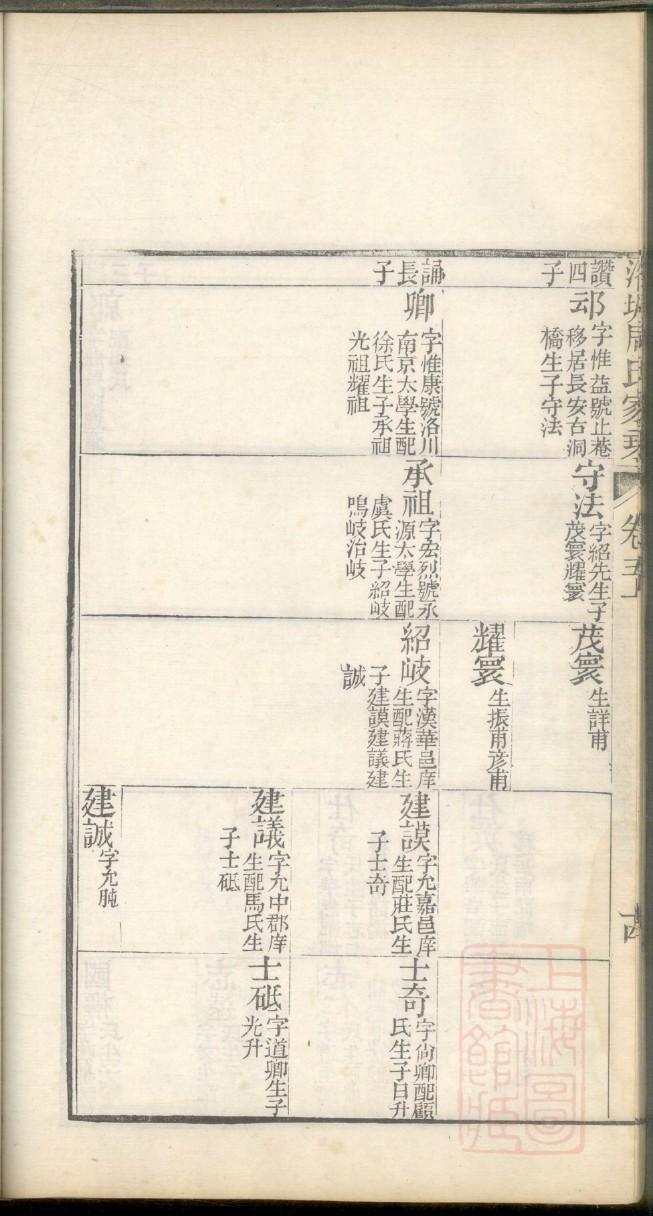 周氏家
卷
讚四子
邧
字惟益號止菴
移居長安古洞
橋生子守法
誦長子
卿
字惟康號洛川
南京太學生配
徐氏生子承祖
光祖耀祖
守法
字紹先生子
茂寰耀寰
承祖
字宏烈號永
源太學生配
虞氏生子紹岐
鳴岐治岐
茂寰
生詳甫
耀寰
生振甫彥甫
紹岐
字漢華邑庠
生配蔣氏生
子建謨建議建
誠
建謨
字允嘉邑庠
生配莊氏生
子士奇
建議
字允中郡庠
生配馬氏生
子士砥
建誠
字允肫
士奇
字尙卿配顧
氏生子日升
士砥
字道卿生子
光升
上海圖書館藏